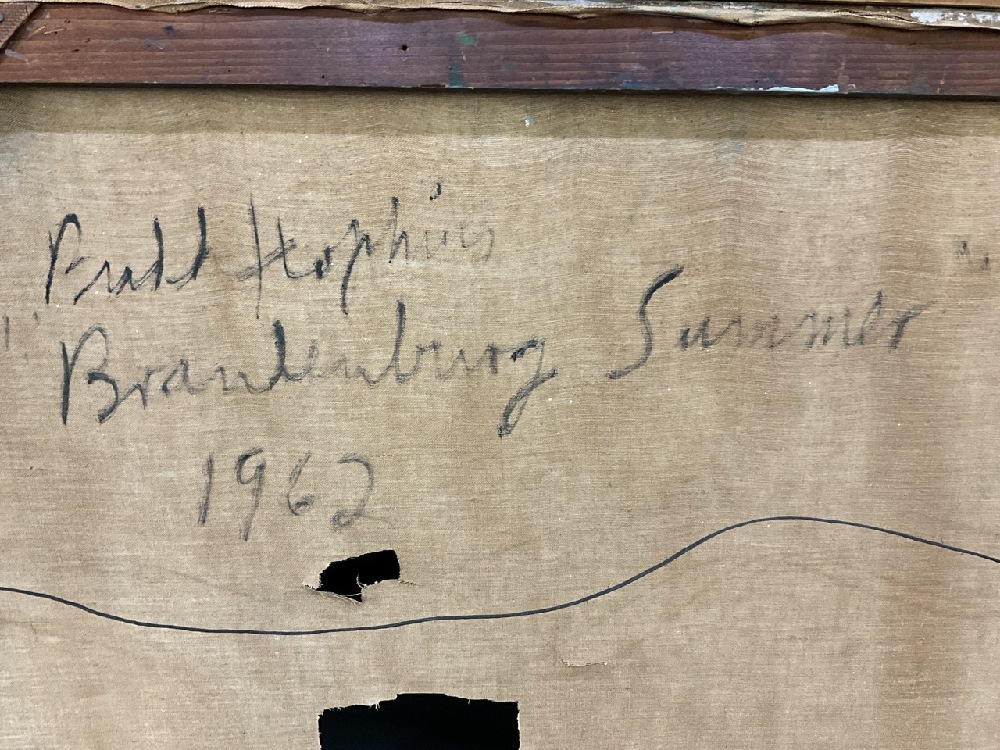 Budd Hopkins
"Brandenburg Summer"
1962